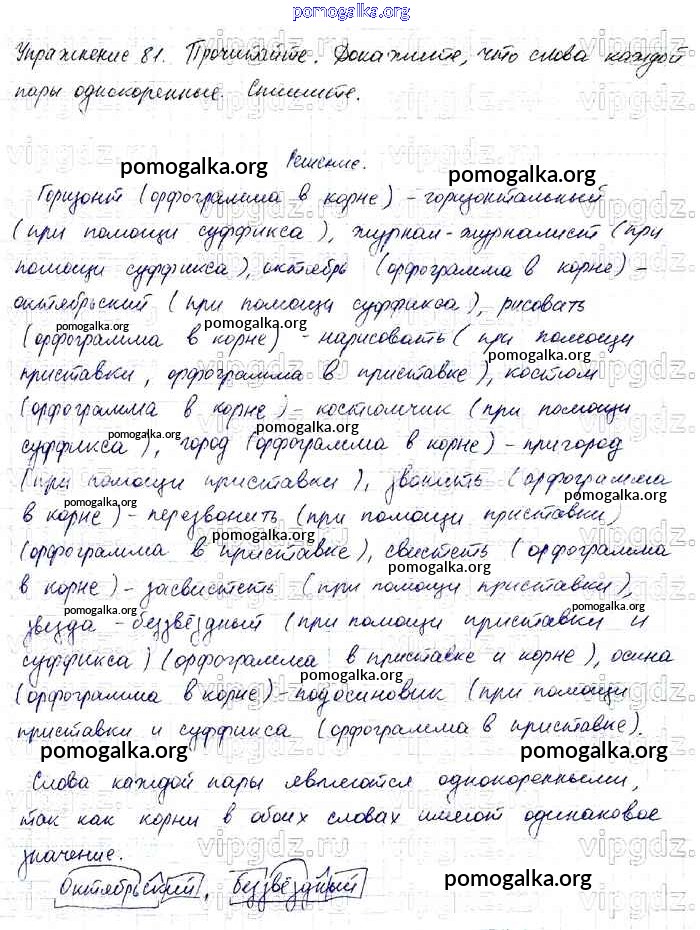 pomogalka.org
Упражнение 81. Прочитайте. Докажите, что слова каждой
пары однокоренные. Спишите.
pomogalka.org Решение. pomogalka.org
Горизонт (орфограмма в корне) - горизонтальный
(при помощи суффикса), журнал - журналист (при
помощи суффикса), октябрь (орфограмма в корне) -
октябрьский (при помощи суффикса), рисовать
pomogalka.org pomogalka.org
(орфограмма в корне) - нарисовать (при помощи
pomogalka.org
приставки, орфограмма в приставке), костюм
pomogalka.org
(орфограмма в корне) - костюмчик (при помощи
pomogalka.org pomogalka.org
суффикса), город (орфограмма в корне) - пригород
(при помощи приставки), звонить (орфограмма
pomogalka.org pomogalka.org
в корне) - перезвонить (при помощи приставки)
pomogalka.org
(орфограмма в приставке), свистеть (орфограмма
pomogalka.org
в корне) - засвистеть (при помощи приставки),
pomogalka.org pomogalka.org
звезда - беззвёздный (при помощи приставки и
суффикса) (орфограмма в приставке и корне), осина
pomogalka.org
(орфограмма в корне) - подосиновик (при помощи
приставки и суффикса (орфограмма в приставке).
pomogalka.org pomogalka.org
Слова каждой пары являются однокоренными,
так как корни в обоих словах имеют одинаковое
значение.
Октябрьский, беззвёздный pomogalka.org